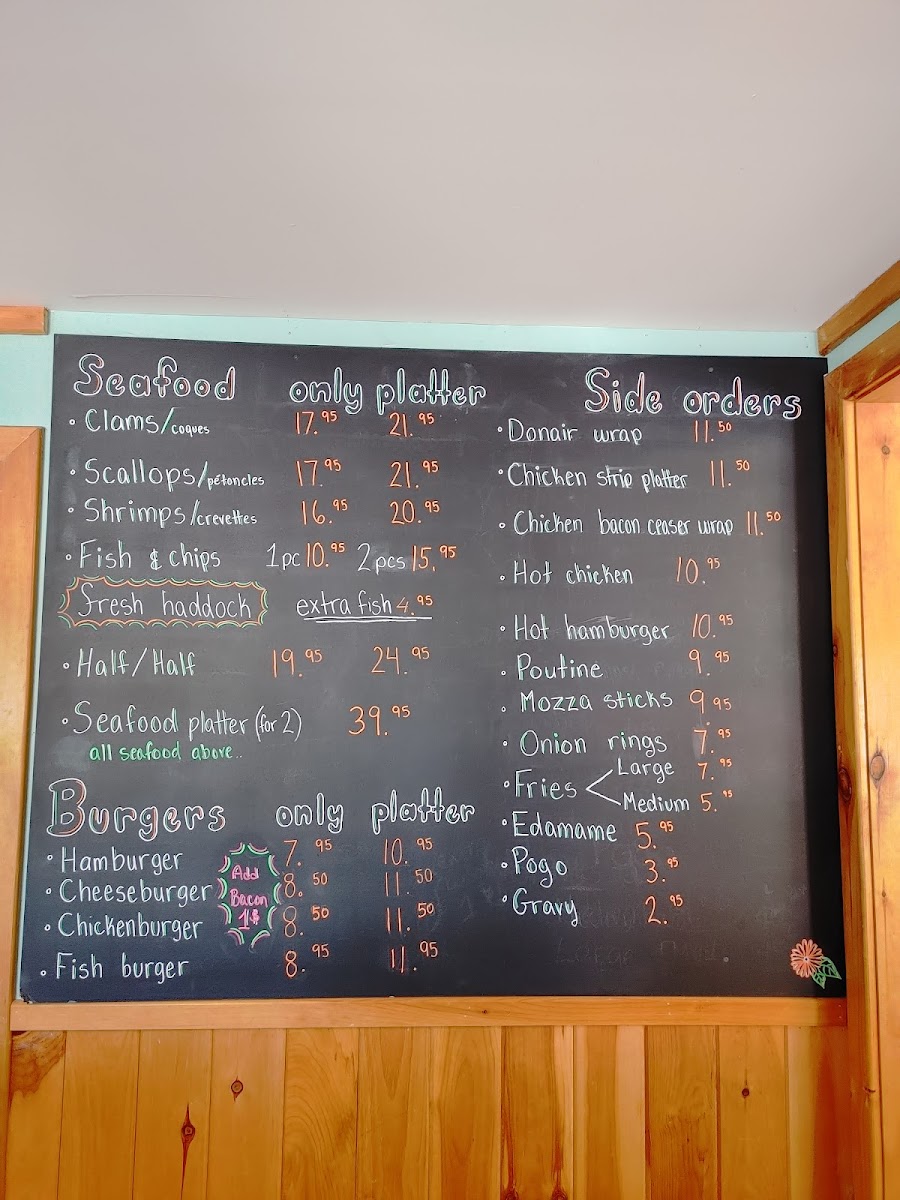 Seafood only platter
• Clams/coques 17.95 21.95
• Scallops/pétoncles 17.95 21.95
• Shrimps/crevettes 16.95 20.95
• Fish & chips 1pc 10.95 2pcs 15.95
fresh haddock extra fish 4.95
• Half/Half 19.95 24.95
• Seafood platter (for 2) 39.95
all seafood above..
Burgers only platter
• Hamburger 7.95 10.95
• Cheeseburger 8.50 11.50
• Chickenburger 8.50 11.50
• Fish burger 8.95 11.95
Add
Bacon
1$
Side orders
• Donair wrap 11.50
• Chicken strip platter 11.50
• Chicken bacon ceaser wrap 11.50
• Hot chicken 10.95
• Hot hamburger 10.95
• Poutine 9.95
• Mozza sticks 9.95
• Onion rings 7.95
• Fries < Large 7.95
Medium 5.95
• Edamame 5.95
• Pogo 3.95
• Gravy 2.95